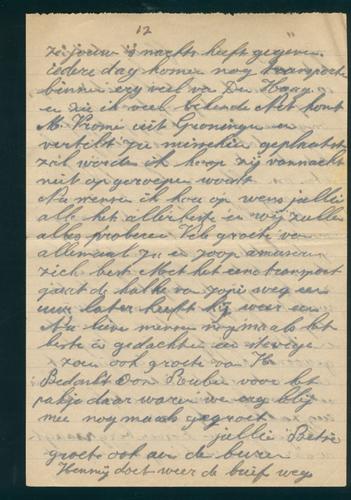 12
zei jouw 's nachts heeft gegeven.
iedere dag komen nog transporte
binnen erg veel van Den Haag
en zie ik veel bekende Net komt
M. Vromé uit Groningen en
verteld ze misschien geplaatst
zal worden ik hoop zij vannacht
niet opgeroepen wordt
Nu mensen ik hou op wens jullie
alle het allerbeste en wij zullen
alles proberen Vele groete van
allemaal Ja en Joop amuseren
zich best. Met het eene transport
gaat de helfte van Jopie weg een
uur later heeft hij weer een
Nu lieve mensen nogmaals het
beste in gedachten een stevige
zoen ook groete van H.
Bedankt Oom Ruben voor het
pakje daar waren we erg blij
mee nogmaals gegroet
jullie Betsie
groete ook aan de buren
Henny doet weer de brief weg